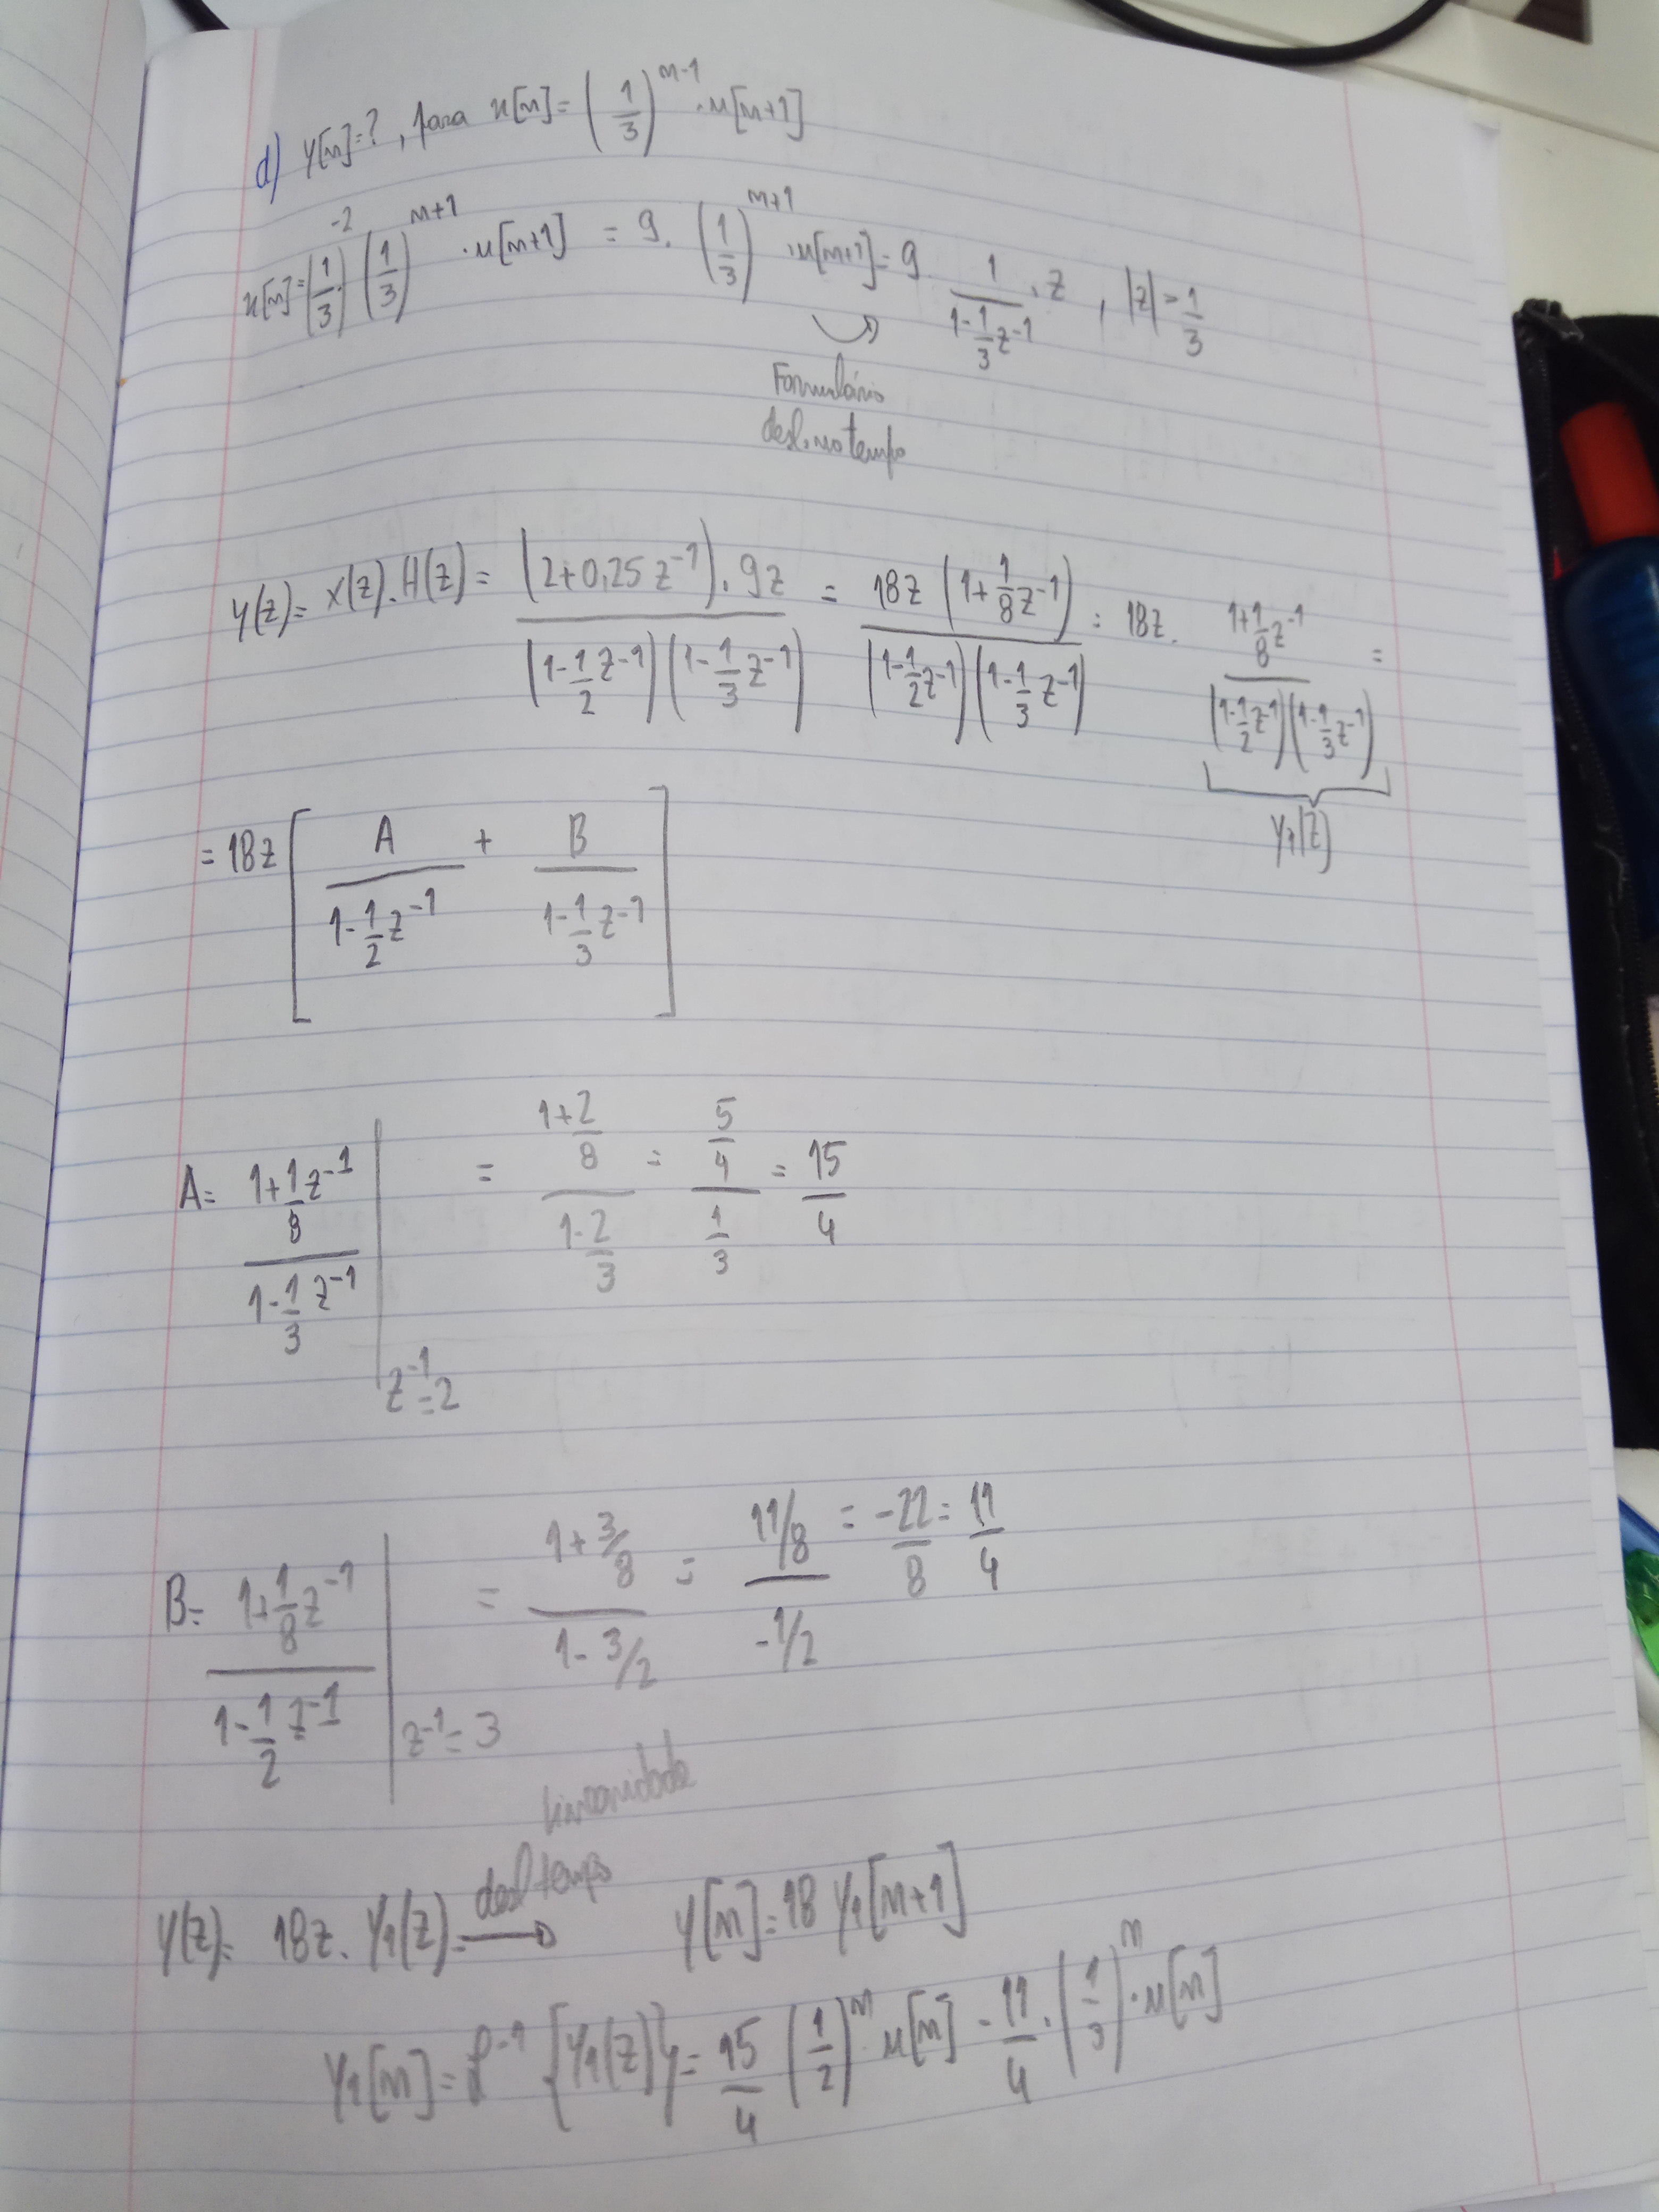 d) y[n]=?, para x[n]=(1/3)^{n-1}·u[n+1]
x[n]=(1/3)^{-2}·(1/3)^{n+1}·u[n+1] = 9·(1/3)^{n+1}·u[n+1]=9·1/(1-1/3 z^{-1})·z, |z|>1/3
Formulário
desl. no tempo
Y(z)=X(z).H(z)=(2+0,25z^{-1}).9z/((1-1/2 z^{-1})(1-1/3 z^{-1})) = 18z(1+1/8 z^{-1})/((1-1/2 z^{-1})(1-1/3 z^{-1})) = 18z.(1+1/8 z^{-1})/((1-1/2 z^{-1})(1-1/3 z^{-1})) =
Y1(z)
=18z[A/(1-1/2 z^{-1}) + B/(1-1/3 z^{-1})]
A=(1+1/8 z^{-1})/(1-1/3 z^{-1})|z^{-1}=2 = (1+2/8)/(1-2/3) = (5/4)/(1/3) = 15/4
B=(1+1/8 z^{-1})/(1-1/2 z^{-1})|z^{-1}=3 = (1+3/8)/(1-3/2) = (11/8)/(-1/2) = -22/8 = 11/4
linearidade
desl tempo
Y(z)= 18z.Y1(z)=→ y[n]=18 y1[n+1]
y1[n]=Z^{-1}{Y1(z)}=15/4(1/2)^n u[n] - 11/4.(1/3)^n.u[n]